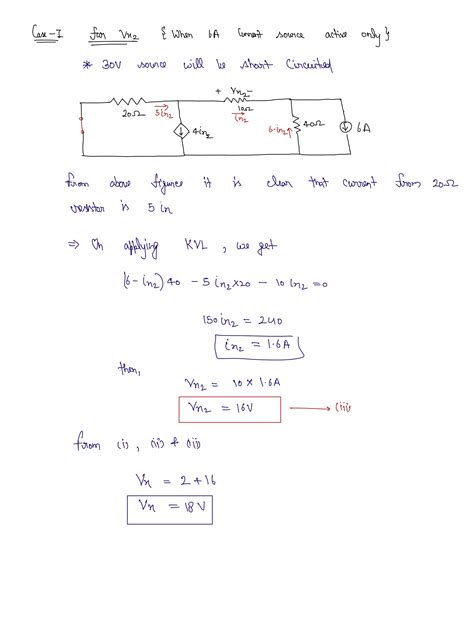 Case-I for Vx2 { When 6A Current source active only }
* 30V source will be short Circuited
+ Vx2 -
20Ω 5ix2 10Ω
ix2
4ix2 6-ix2 40Ω 6A
from above figure it is clear that current from 20Ω
resistor is 5 ix
⇒ On applying KVL, we get
(6-ix2) 40 - 5 ix2×20 - 10 ix2 = 0
150ix2 = 240
ix2 = 1.6A
then,
Vx2 = 10 × 1.6A
Vx2 = 16V → (iii)
from (i), (ii) & (iii)
Vx = 2 + 16
Vx = 18V